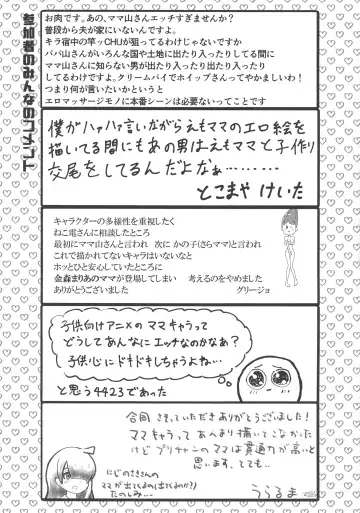 参加者のみなさんのひとこと
お肉です。あの、ママ山さんエッチすぎませんか？
普段から夫が家にいないんですよ。
キラ宿中の竿ッCHUが狙ってるわけじゃないですか
パパ山さんがいろんな国や土地に出たり入ったりしてる間に
ママ山に知らない男が出たり入ったり出たり入ったり
してるわけですよ。クリームパイでホイップさんってやかましいわ！
つまり何が言いたいかというと
エロマッサージモノに本番シーンは必要ないってことです
僕がハァハァ言いながらえもママのエロ絵を
描いてる間にもあの男はえもママと子作り
交尾をしてるんだよなぁ………
とこまや けいた
キャラクターの多様性を重視したく
ねこ電さんに相談したところ
最初にママ山さんと言われ 次に かの子(さらママ)と言われ
これで描かれてないキャラはいないなと
ホッとひと安心していたところに
金森まりあのママが登場してしまい 考えるのをやめました
ありがとうございました グリージョ
子供向けアニメのママキャラって
どうしてあんなにエッチなのかなぁ？
子供心にドキドキしちゃうよね…
と思う4423であった
今回さそっていただきありがとうございました！
ママキャラってあんまり描いてこなかった
けどプリチャンのママは貫通力が高いと
思います、とても…
うらるま
にじのさきさんの
ママが出てくるのか(出てくるのか?)
たのしみ…